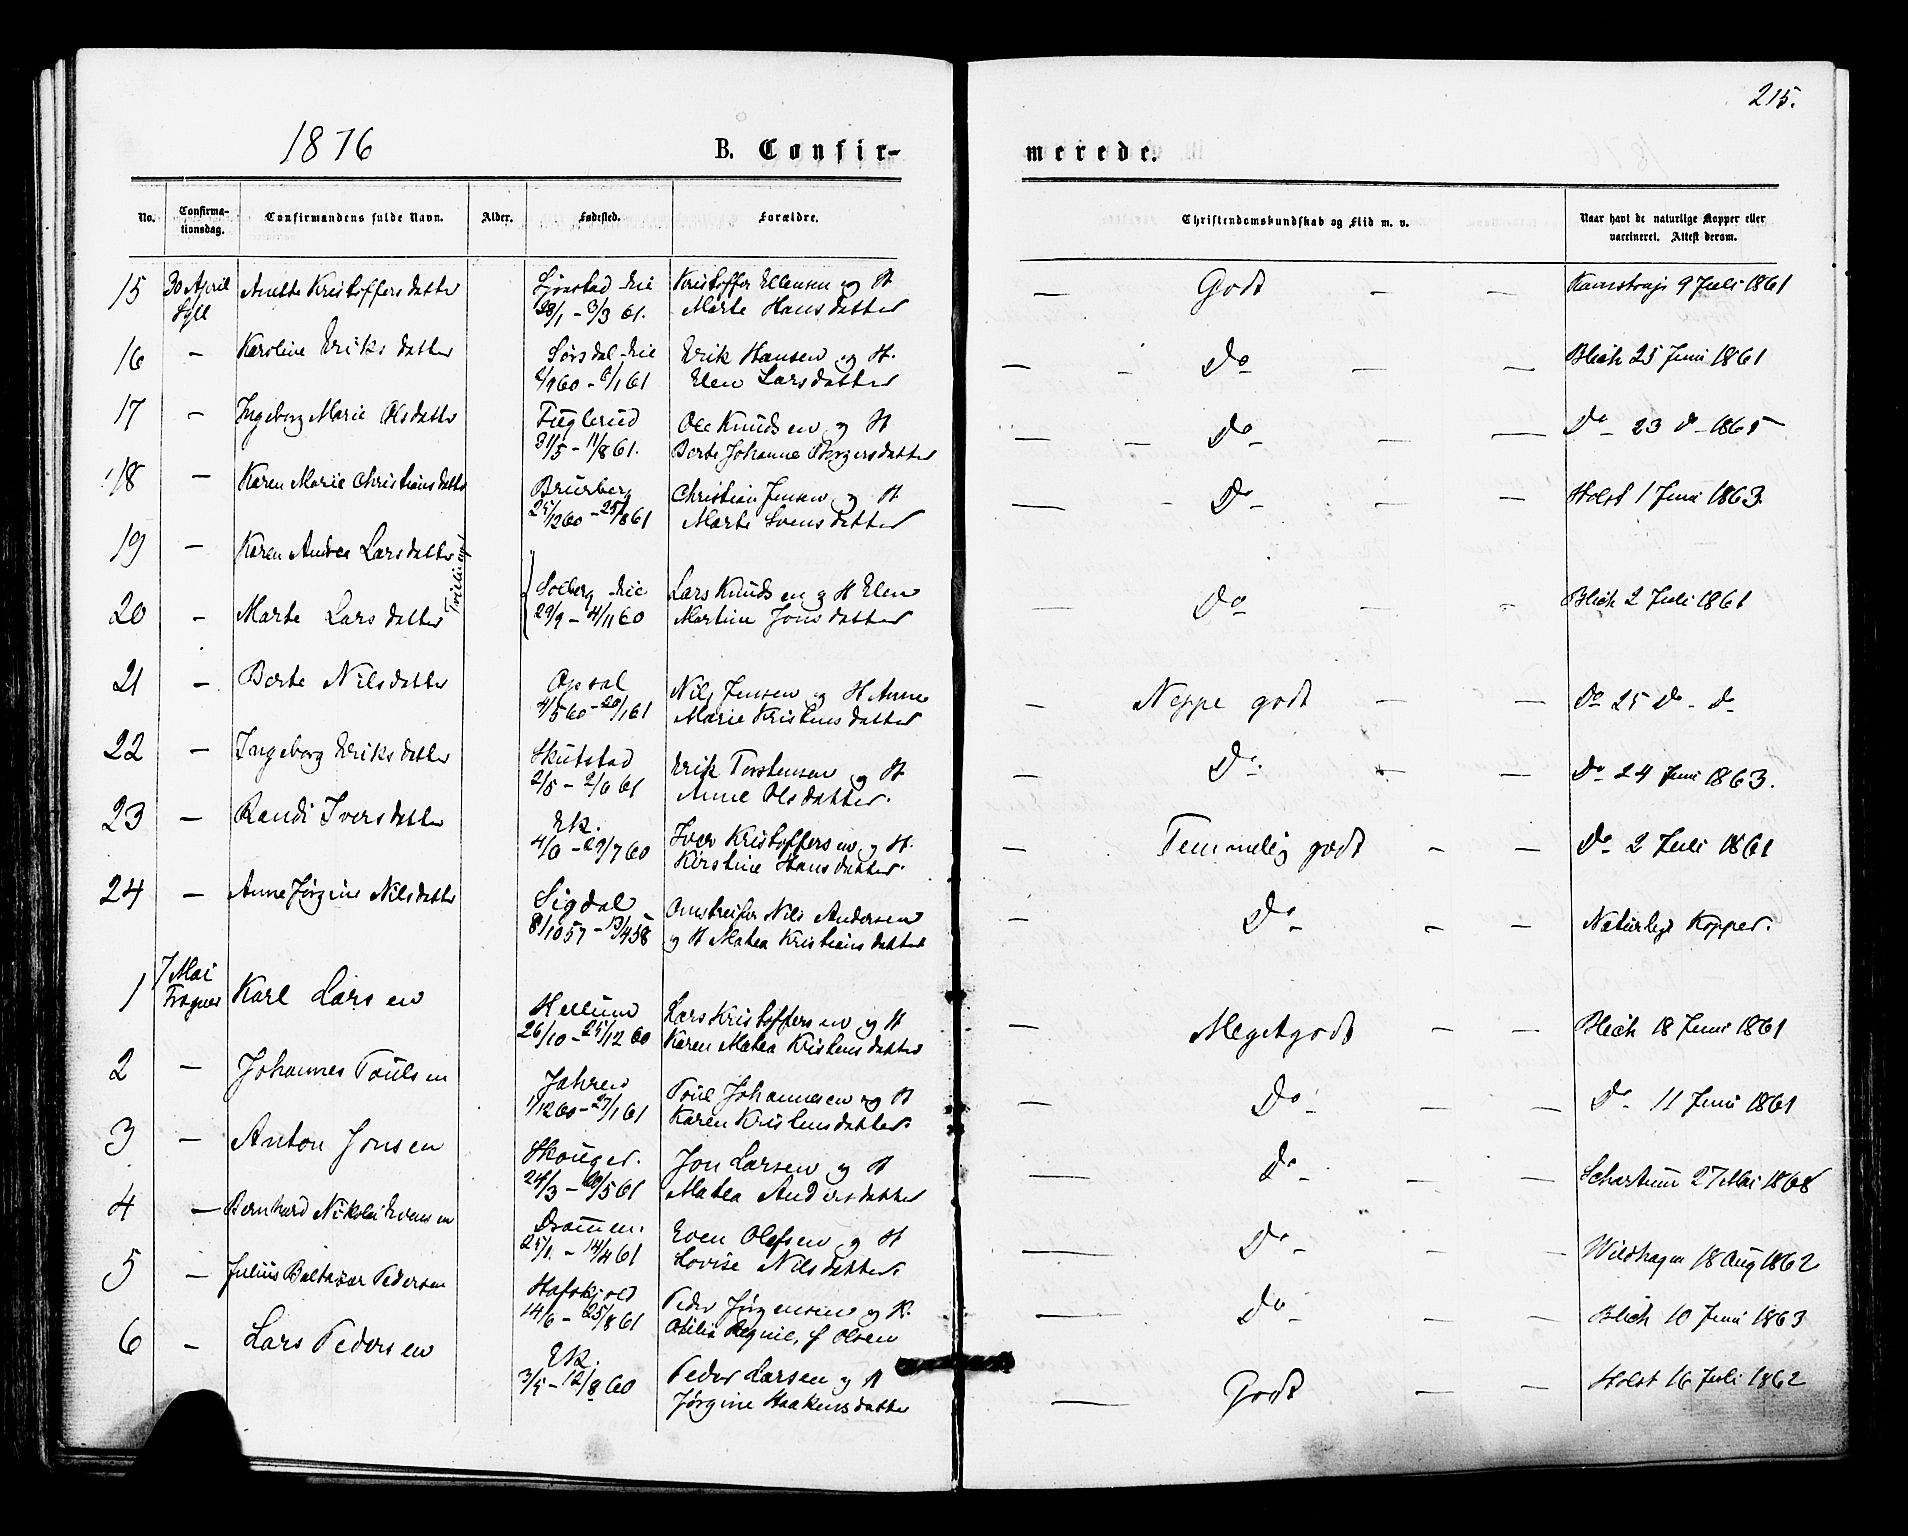 215.
1876
B. Confir-
merede.
No.
Confirma-
tionsdag.
Confirmandens fulde Navn.
Alder.
Fødested.
Forældre.
Christendomskundskab og Flid m. v.
Naar havt de naturlige Kopper eller
vaccineret. Attest derom.
15 30 April Anette Kristoffersdatter Kristoffer Ellensen og H Godt 9 Juli 1861
Syll 28/1 - 3/3 61. Marte Hansdatter
16 - Karoline Eriksdatter Sørsdal Erik Hansen og H. Do Blich 25 Juni 1861
Elen Larsdatter
17 - Ingeborg Marie Olsdatter Fuglerud Ole Knudsen og H Do Do 23 D - 1865
31/5 - 11/8 61. Berte Johanne
18 - Karen Marie Christiansdatter Brurberg Christian Jensen og H Do Holst 1 Juni 1863.
25/12 60 - 25/8 61 Marte Svensdatter
19 - Karen Andrea Larsdatter
Tvillinger
20 - Marte Larsdatter Solberg Lars Knudsen og H Elen Do Blich 2 Juli 1861
29/9 - 4/11 60 Martine Jonsdatter
21 - Berte Nilsdatter Opsal Nils Jensen og H Anne Neppe godt Do 25 Do - Do
4/5 60 - 20/1 61 Marie Kristensdatter
22 - Ingeborg Eriksdatter Skutstad Erik Torstensen og H Do Do 24 Juni 1863.
2/5 - 2/6 61 Anne Olsdatter.
23 - Randi Iversdatter Ek. Iver Kristoffersen og H. Temmelig godt Do 2 Juli 1861
4/6 - 29/7 60 Kirstine Hansdatter.
24 - Anne Jørgine Nilsdatter Sigdal Omstreifer Nils Andersen Do Naturlige Kopper.
8/10 57 - 13/4 58 og H Matea Kristiansdatter
1 7 Mai Karl Larsen Hellum Lars Kristoffersen og H Meget godt Blich 18 Juni 1861
Frogner 26/10 - 25/12 60 Karen Matea Kristensdatter
2 - Johannes Poulsen Jahren Poul Johannesen og H Do Do 11 Juni 1861
1/12 60 - 27/1 61 Karen Kristensdatter.
3 - Anton Jonsen Skouger. Jon Larsen og H Do Schartum 27 Mai 1868
24/3 - 20/5 61 Matea Andersdatter
4 - Bernhard Nikolai Evensen Drammen. Even Olefsen og H Do Wildhagen 18 Aug 1862
25/1. - 14/4 61 Lovise Nilsdatter.
5 - Julius Baltasar Pedersen Hafskjold Peder Jørgensen og H. Do Blich 10 Juni 1863
14/6 - 25/8 61 Otilia Regine, f Olsen
6 - Lars Pedersen Ek. Peder Larsen og H Godt Holst 16 Juli 1862
3/5 - 12/8 60 Jørgine Haakensdatter